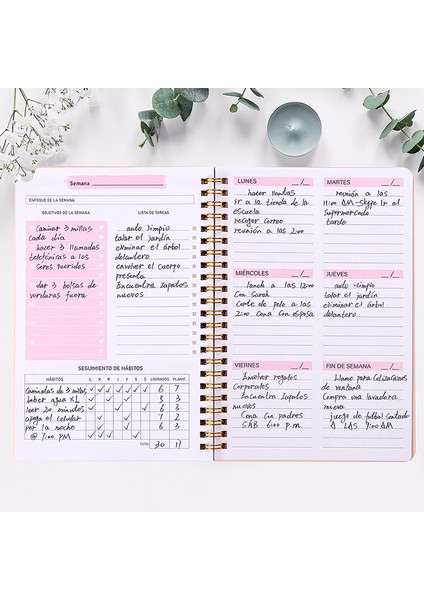 Semana
ENFOQUE DE LA SEMANA
OBJETIVOS DE LA SEMANA
caminar 3 millas
cada dia
hacer 3 llamadas
telefónicas a los
seres queridos
dar 3 bolsas de
verduras fuera
LISTA DE TAREAS
auto limpio
talar el jardín
eliminar el árbol
delantero
envolver el cuerpo
presenta
Encuentra zapatos
nuevos
SEGUIMIENTO DE HÁBITOS
HÁBITOS L M M J V S D LOGRADOS PLANIF.
caminatas de 3 millas 6 7
beber agua XL 5 3
leer 20 minutos 6 3
apaga el celular 7 2
por la noche 6 3
@ 7:00 PM
TOTAL 30 11
LUNES __/__
hacer
ir a la tienda de la
escuela
recoger correo
reunión a las 2:00
MARTES __/__
reunión a las
11:00 AM -skype Ir al
supermercado
tarde
MIÉRCOLES __/__
lunch a las 12:00
Con Sarah
Corte de pelo a las
2:00 Cena con esposa
JUEVES __/__
auto -limpio
talar el jardín
eliminar el árbol
delantero
VIERNES __/__
Involver regalos
corporates
Encuentra zapatos
nuevos
Cena con padres
SAB 6:00 p.m.
FIN DE SEMANA __/__
llame para cotizaciones
de ventana
Compra una lavadora
nueva
juego de fútbol sentado
A LAS 9:00 AM